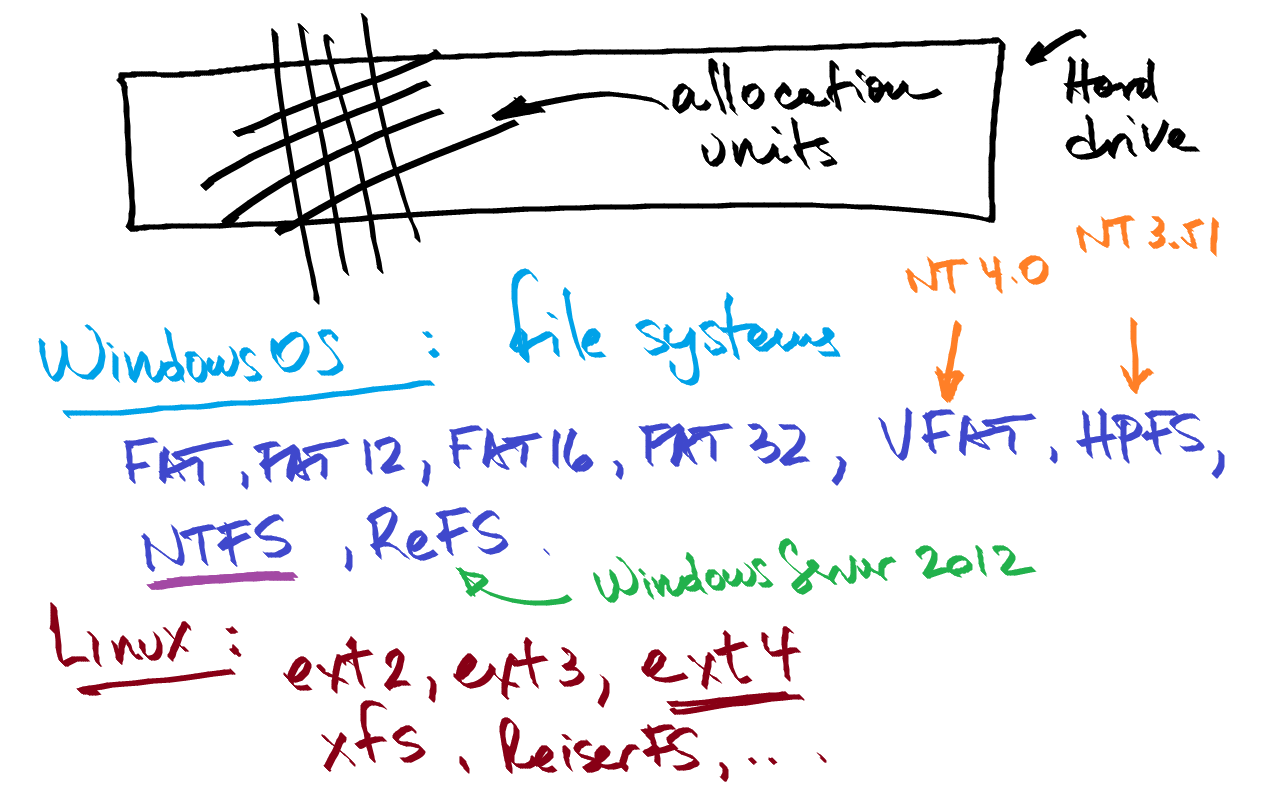 allocation
units
Hard
drive
NT 4.0
NT 3.51
Windows OS : file systems
FAT, FAT 12, FAT 16, FAT 32, VFAT, HPFS,
NTFS, ReFS.
Windows Server 2012
Linux : ext2, ext3, ext4
xfs, ReiserFS, ...